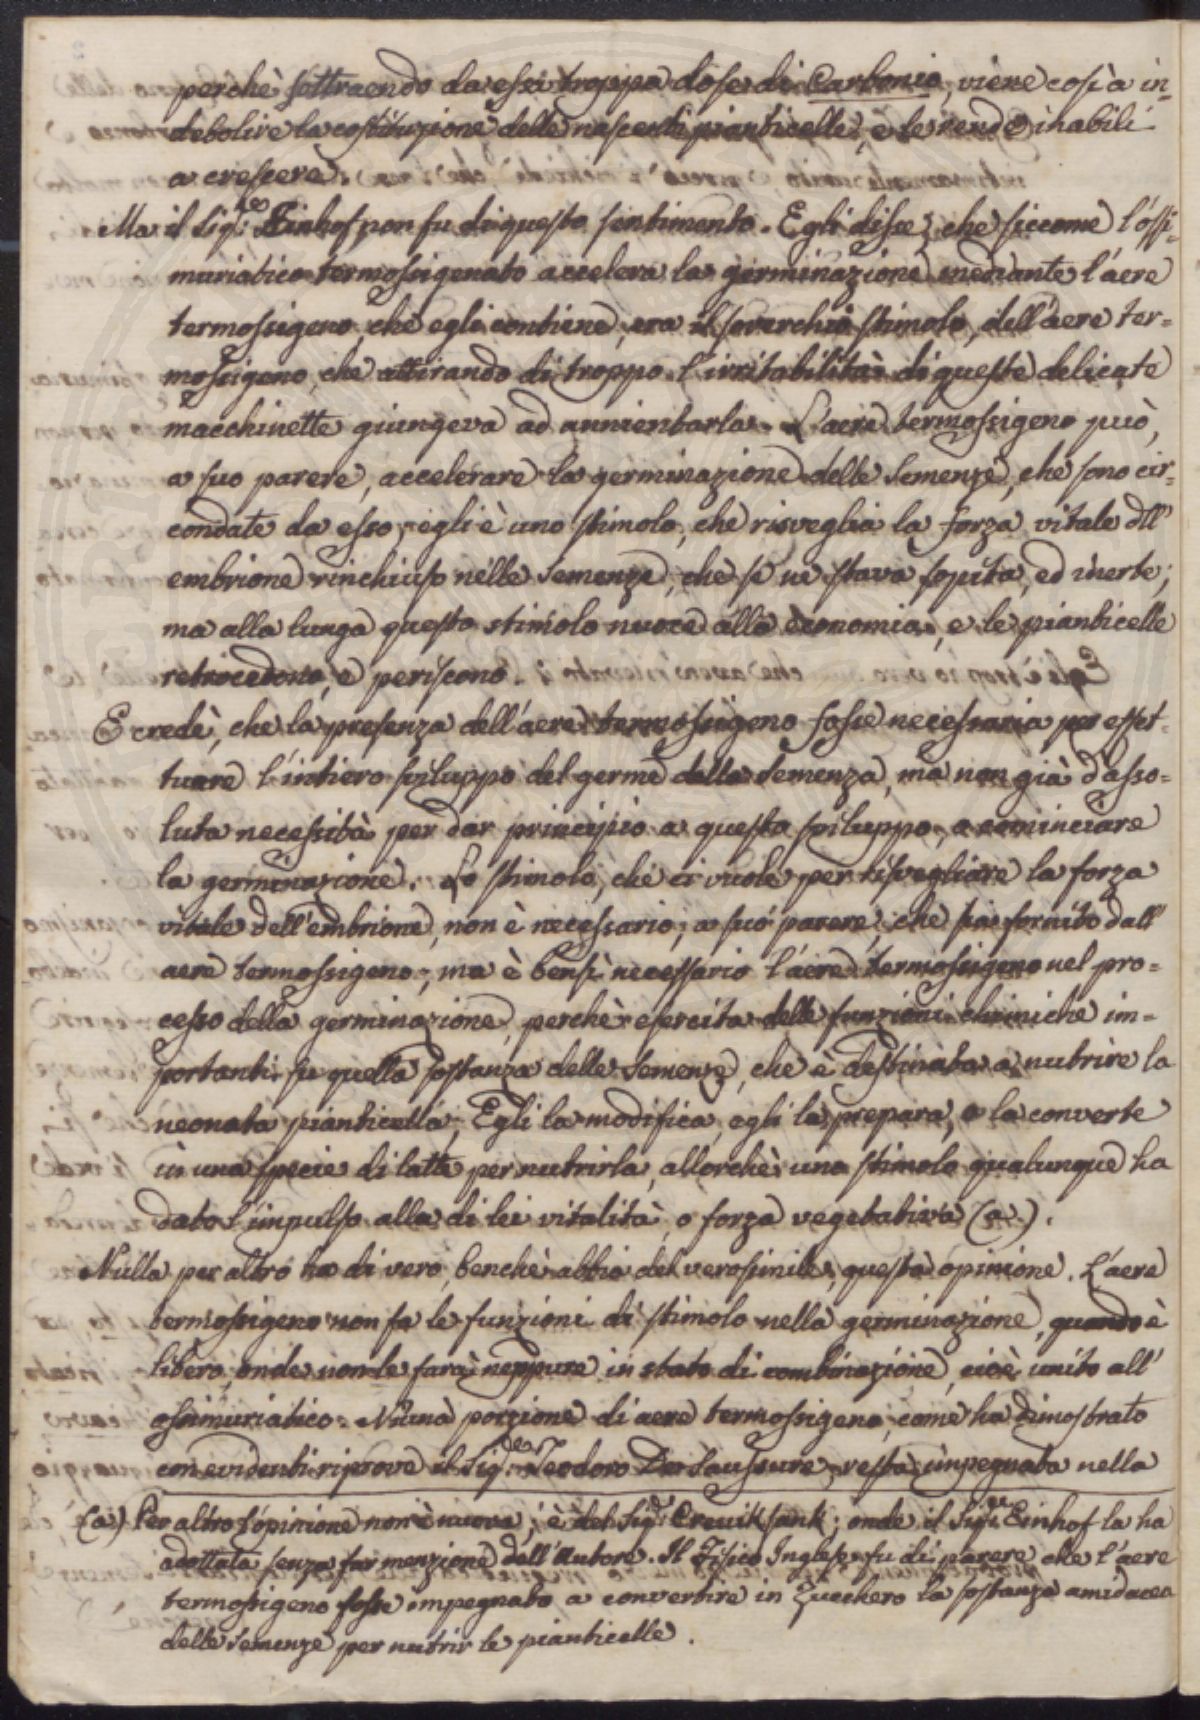 perchè sottraendo da essi troppa dose di Carbonio, viene così a in=
debolire la costituzione delle nascenti pianticelle, e le rende inabili
a crescere.
Ma il Sig.re Einhof non fu di questo sentimento. Egli disse, che siccome l'ossi=
muriatico termossigenato accelera la germinazione mediante l'aere
termossigeno, che egli contiene, era il soverchio stimolo dell'aere ter=
mossigeno, che attirando di troppo l'irritabilità di queste delicate
macchinette giungeva ad annientarla. L'aere termossigeno può,
a suo parere, accelerare la germinazione delle Semenze, che sono cir=
condate da esso, egli è uno stimolo, che risveglia la forza vitale dll'
embrione rinchiuso nelle Semenze, che se ne stava sopita, ed inerte;
ma alla lunga questo stimolo nuoce alla economia, e le pianticelle
retrocedono, e periscono.
E credè, che la presenza dell'aere termossigeno fosse necessaria per effet=
tuare l'intiero sviluppo del germe della Semenza, ma non già d'asso=
luta necessità per dar principio a questo sviluppo, a cominciare
la germinazione. Lo stimolo, che ci vuole per risvegliare la forza
vitale dell'embrione, non è necessario, a suo parere, che sia fornito dall'
aere termossigeno, ma è bensì necessario l'aere termossigeno nel pro=
cesso della germinazione, perchè esercita delle funzioni chimiche im=
portanti su quella sostanza delle Semenze, che è destinata a nutrire la
neonata pianticella; Egli la modifica, egli la prepara, e la converte
in una specie di latte per nutrirla, allorchè uno stimolo qualunque ha
dato l'impulso alla di lei vitalità, o forza vegetativa (a).
Nulla per altro ha di vero, benchè abbia del verosimile, questa opinione. L'aere
termossigeno non fa le funzioni di stimolo nella germinazione, quando è
libero, onde non le farà neppure in stato di combinazione, cioè unito all'
ossimuriatico. Niuna porzione di aere termossigeno, come ha dimostrato
con evidenti riprove il Sig.re Teodoro De Saussure, resta impegnata nella
(a) Per altro l'opinione non è nuova; è del Sig.re Cruikshank; onde il Sig.re Einhof la ha
adottata senza far menzione dell'Autore. Il Fisico Inglese fu di parere che l'aere
termossigeno fosse impegnato a convertire in Zucchero la sostanza amidacea
delle Semenze per nutrir le pianticelle.